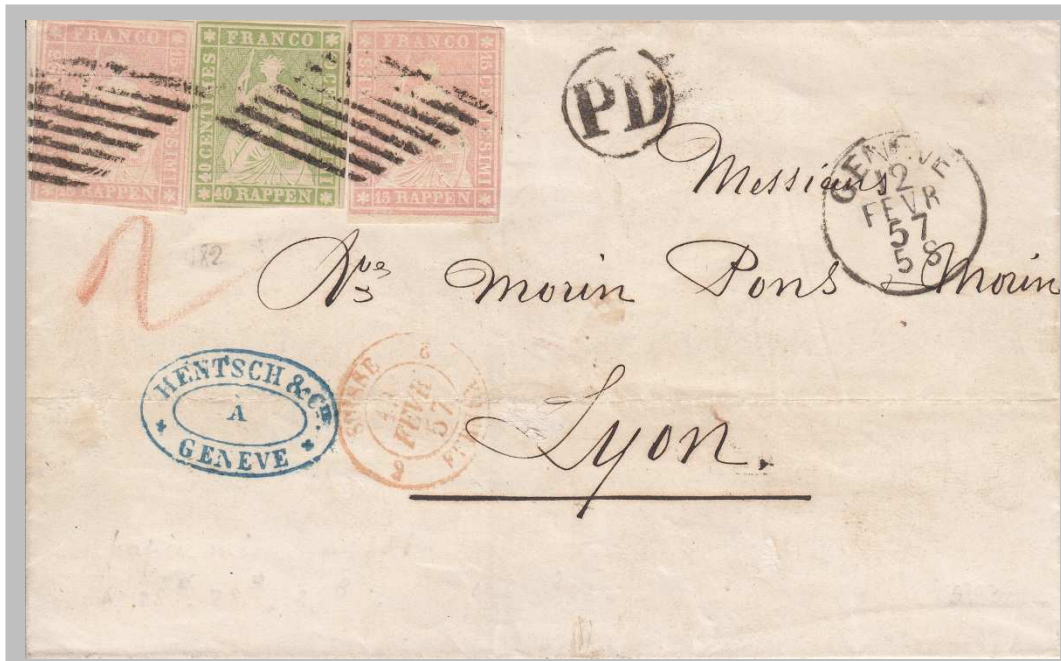 FRANCO
15 RAPPEN
FRANCO
40 CENTIMES
40 RAPPEN
FRANCO
15 CENTESIMI
15 RAPPEN
PD
GENÈVE
12
FEVR
57
5 S
Messieurs
Morin Pons & Morin
2
182
HENTSCH & Cie
À
GENEVE
SUISSE
FEVR
57
Lyon.